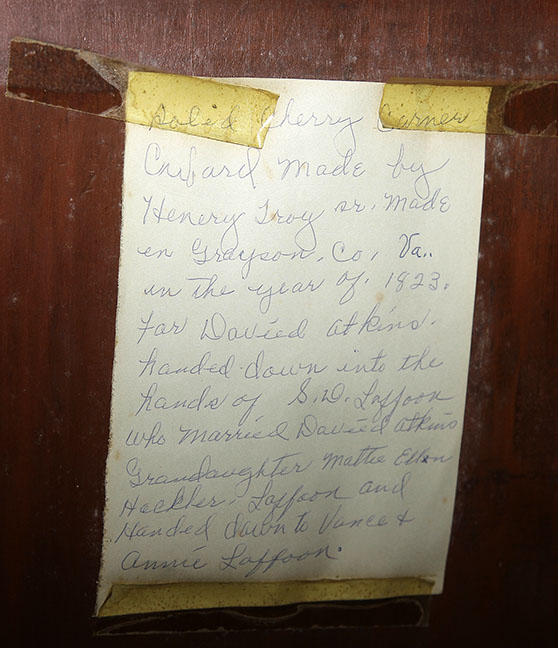 Soled Cherry Corner
Cubard Made by
Henery Troy sr. Made
en Grayson. Co, Va..
in the year of. 1823.
for Davied Atkins.
handed down into the
hands of S.D. Laffoon
who Married Davied Atkins
Grandaughter Mattie Ellen
Heckler. Laffoon and
Handed down to Vance &
Annie Laffoon.